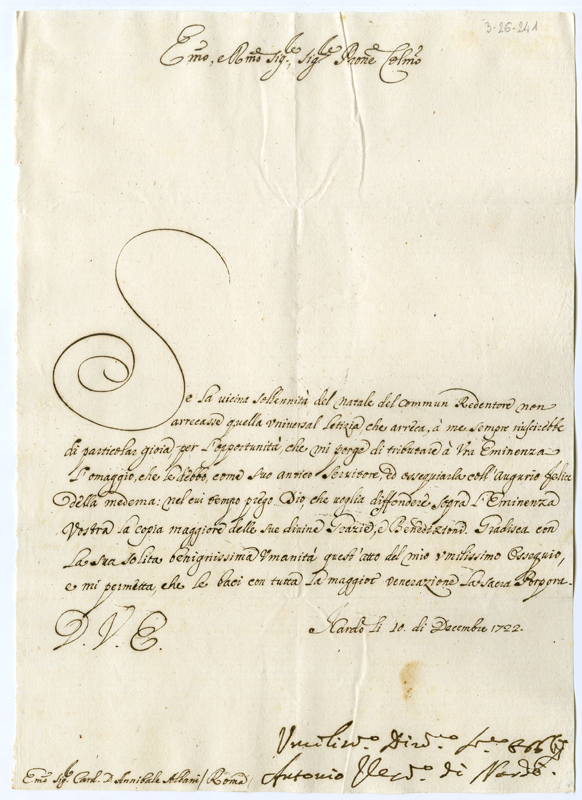 3-26-241
Emo, e Rmo Sig.re, Sig.re Prone Colmo
Se la vicina sollennità del natale del commun Redentore non
arrecasse quella universal letizia che arreca, à me sempre riuscirebbe
di particolar gioia per l'opportunità, che mi porge di tributare à Vra Eminenza
l'omaggio, che le debbo, come suo antico Servitore, ed essequiarla coll'Augurio felice
della medema: nel cui tempo priego Dio, che voglia diffondere sopra l'Eminenza
Vostra la copia maggiore delle sue divine Grazie, e Benedizzioni. Gradisca con
la sua solita benignissima Umanità quest'atto del mio umilissimo Ossequio,
e mi permetta, che le baci con tutta la maggior venerazione la Sacra Porpora.
D. V. E.
Nardò li 10. di Decembre 1722.
Umiliss.o Div.mo
Antonio Vesc.o di Nardò.
Emo Sig.re Card. D. Annibale Albani / Roma /